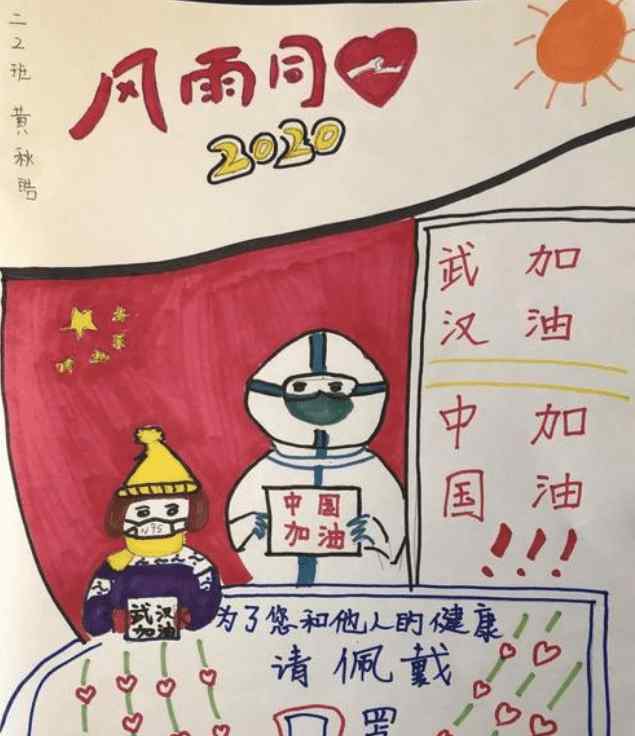 二2班 黄秋皓
风雨同
2020
武汉
加油
中国
加油
!!!
中国
加油
N95
武汉
加油
为了您和他人的健康
请佩戴
罩